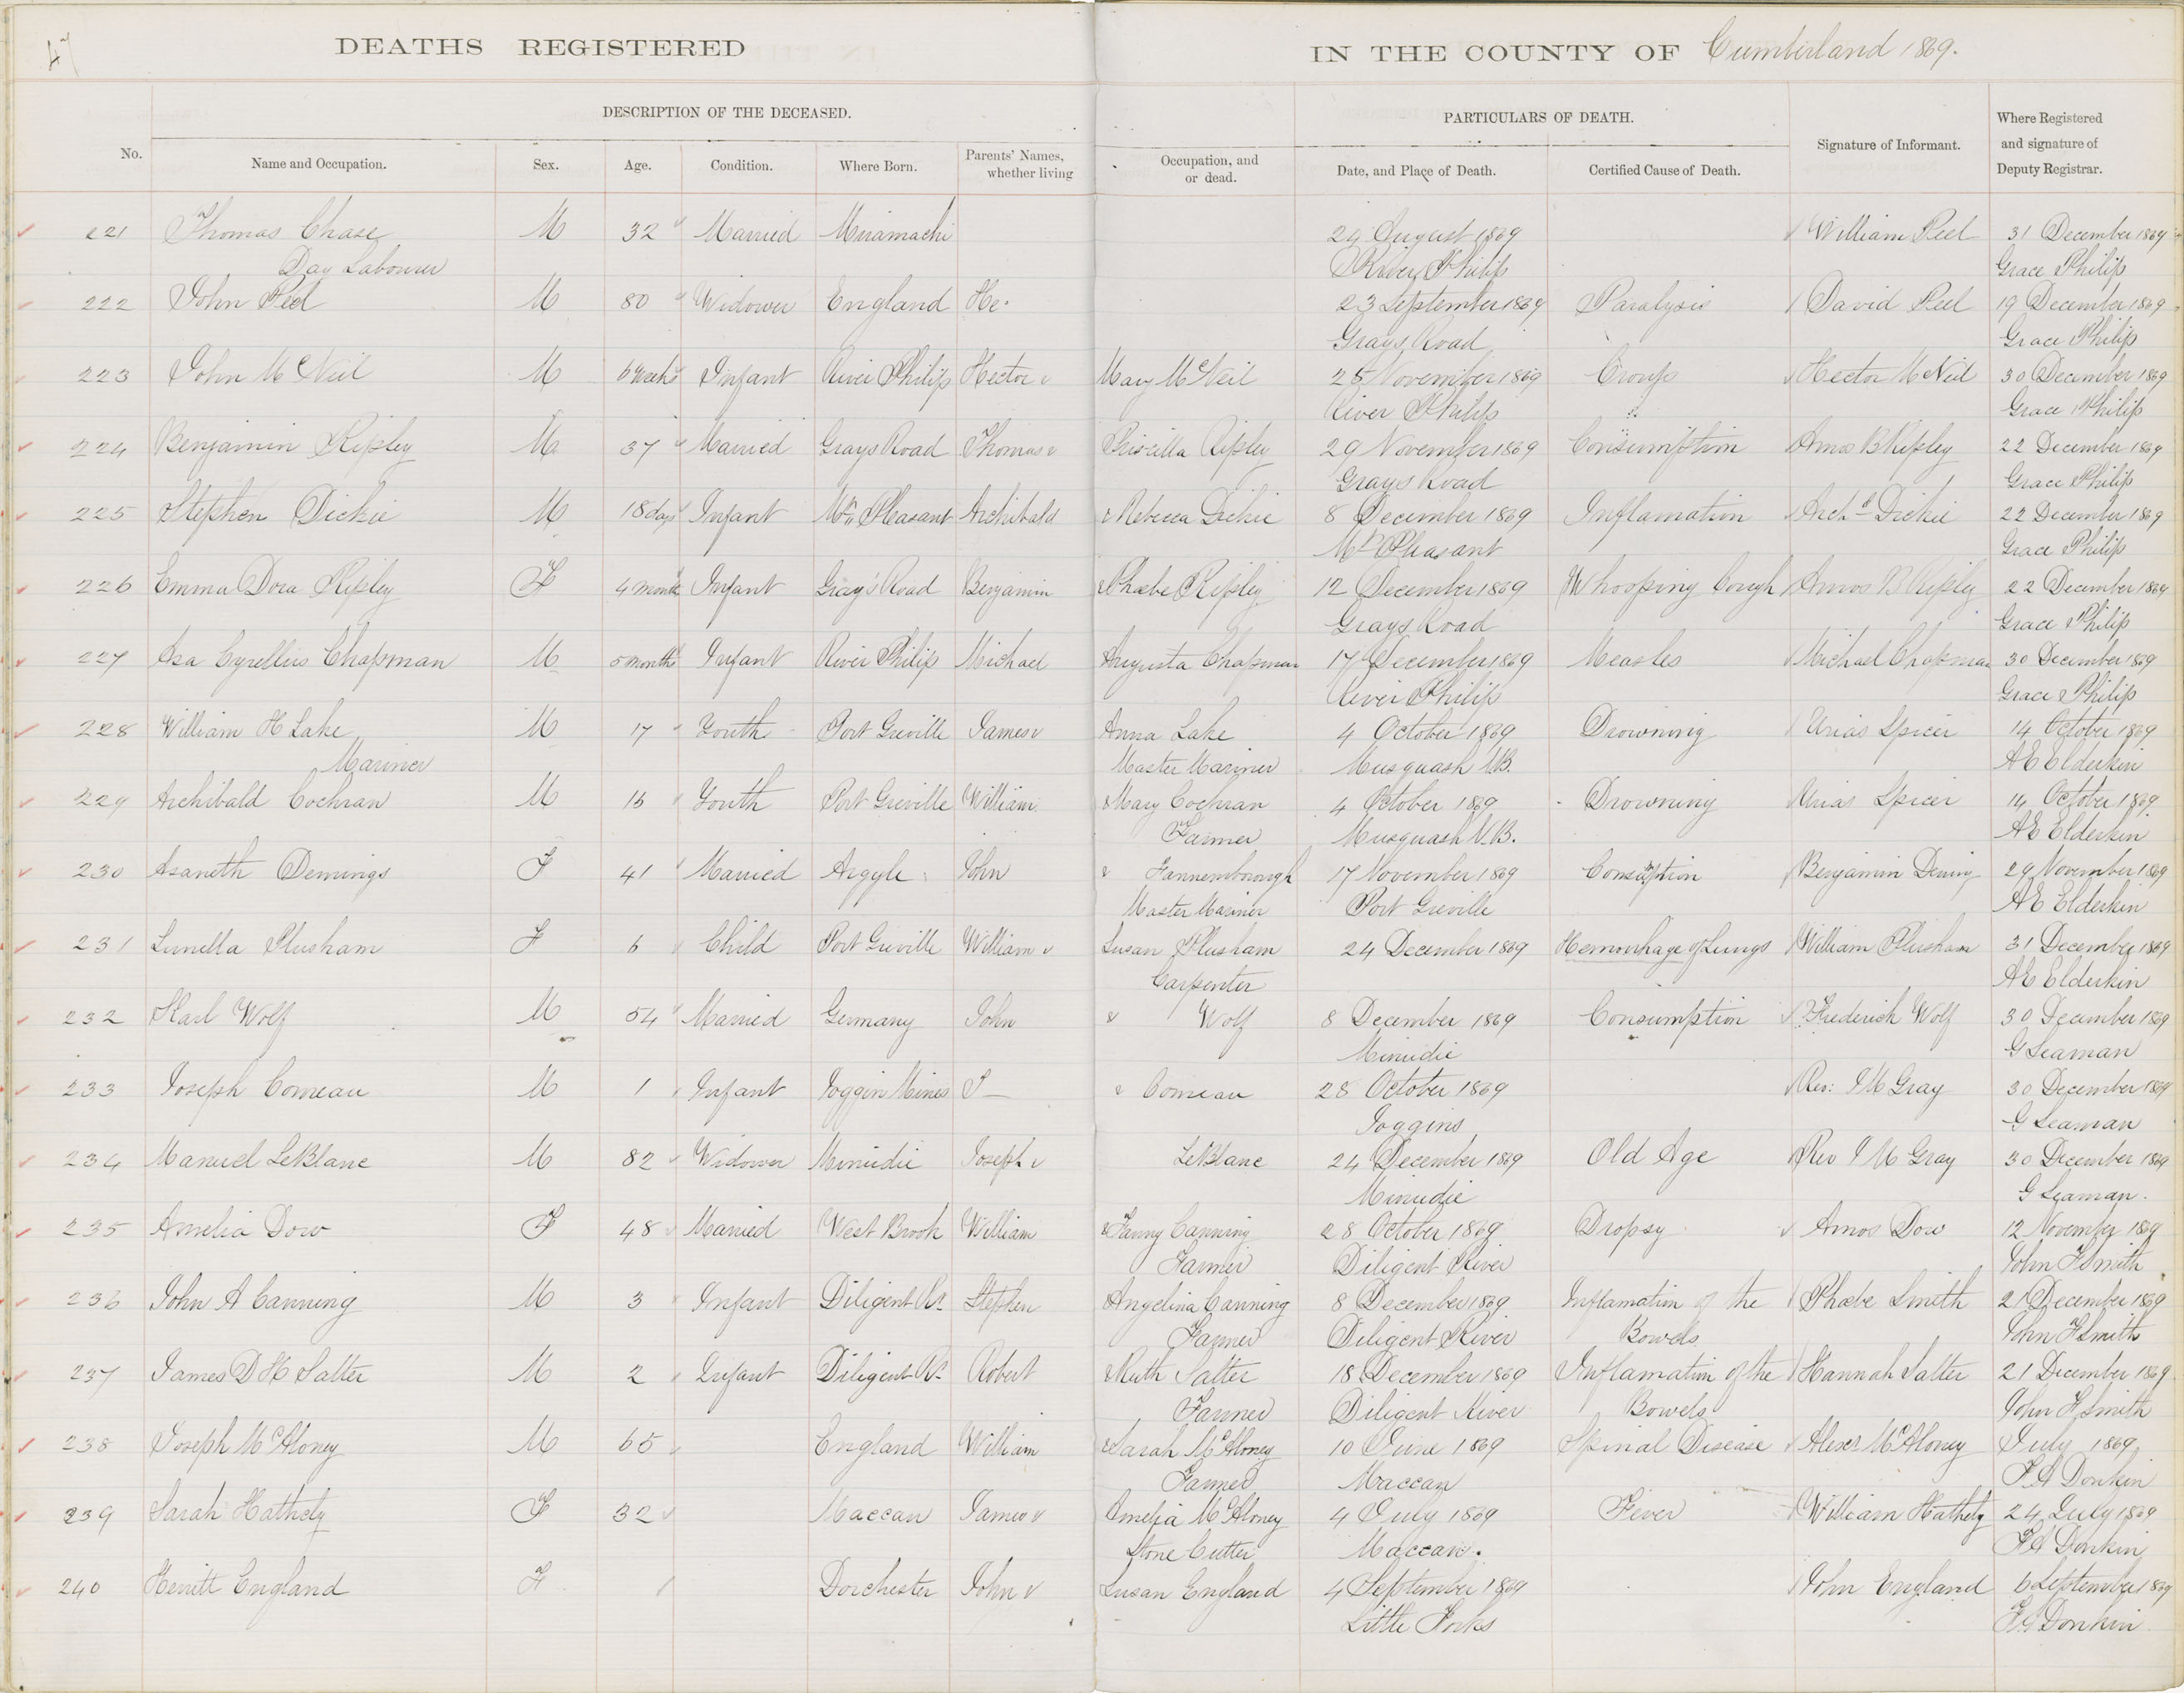 47
DEATHS REGISTERED IN THE COUNTY OF Cumberland 1869.
DESCRIPTION OF THE DECEASED. PARTICULARS OF DEATH.
No. Name and Occupation. Sex. Age. Condition. Where Born. Parents' Names, whether living Occupation, and or dead. Date, and Place of Death. Certified Cause of Death. Signature of Informant. Where Registered and signature of Deputy Registrar.
221 Thomas Chase M 32 Married Miramachi 24 August 1869 William Peel 31 December 1869
Day Labourer River Philip Grace Philip
222 John Peel M 80 Widower England He. 23 September 1869 Paralysis David Peel 19 December 1869
Grays Road Grace Philip
223 John McNeil M 6 weeks Infant River Philip Hector & Mary McNeil 25 November 1869 Croup Hector McNeil 30 December 1869
River Philip Grace Philip
224 Benjamin Ripley M 37 Married Grays Road Thomas & Priscilla Ripley 29 November 1869 Consumption Amos B Ripley 22 December 1869
Grays Road Grace Philip
225 Stephen Dickie M 18 days Infant Mt Pleasant Archibald & Rebecca Dickie 8 December 1869 Inflamation Archd Dickie 22 December 1869
Mt Pleasant Grace Philip
226 Emma Dora Ripley F 4 months Infant Gray's Road Benjamin & Phœbe Ripley 12 December 1869 Whooping Cough Amos B Ripley 22 December 1869
Grays Road Grace Philip
227 Asa Cyrellius Chapman M 5 months Infant River Philip Michael Augusta Chapman 17 December 1869 Measles Michael Chapman 30 December 1869
River Philip Grace Philip
228 William H Lake M 17 Youth Port Greville James & Anna Lake 4 October 1869 Drowning Urias Spicer 14 October 1869
Mariner Master Mariner Musquash N.B. AE Elderkin
229 Archibald Cochran M 15 Youth Port Greville William & Mary Cochran 4 October 1869 Drowning Urias Spicer 14 October 1869
Farmer Musquash N.B. AE Elderkin
230 Asaneth Demings F 41 Married Argyle John & Fannemborough 17 November 1869 Consumption Benjamin Deming 29 November 1869
Master Mariner Port Greville AE Elderkin
231 Lunilla Plusham F 6 Child Port Greville William & Susan Plusham 24 December 1869 Hemorrhage of Lungs William Plusham 31 December 1869
Carpenter AE Elderkin
232 Karl Wolf M 54 Married Germany John & Wolf 8 December 1869 Consumption Frederich Wolf 30 December 1869
Minudie G Seaman
233 Joseph Comeau M 1 Infant Joggin Mines J — & Comeau 28 October 1869 Rev: J M Gray 30 December 1869
Joggins G Seaman
234 Manuel LeBlanc M 82 Widower Minudie Joseph & LeBlanc 24 December 1869 Old Age Rev J M Gray 30 December 1869
Minudie G Seaman.
235 Amelia Dow F 48 Married West Brook William & Fanny Canning 28 October 1869 Dropsy Amos Dow 12 November 1869
Farmer Diligent River John F Smith
236 John A Canning M 3 Infant Diligent Rr Stephen Angelina Canning 8 December 1869 Inflamation of the Phœbe Smith 21 December 1869
Farmer Diligent River Bowels John F Smith
237 James D H Salter M 2 Infant Diligent Rr Robert & Ruth Salter 18 December 1869 Inflamation of the Hannah Salter 21 December 1869
Farmer Diligent River Bowels John F Smith
238 Joseph McAloney M 65 England William & Sarah McAloney 10 June 1869 Spinal Disease Alexr McAloney July 1869
Farmer Maccan F A Donkin
239 Sarah Hathely F 32 Maccan James & Amelia McAloney 4 July 1869 Fever William Hathely 24 July 1869
Stone Cutter Maccan. F A Donkin
240 Herritt England F / Dorchester John & Susan England 4 September 1869 John England 6 September 1869
Little Forks F A Donkin